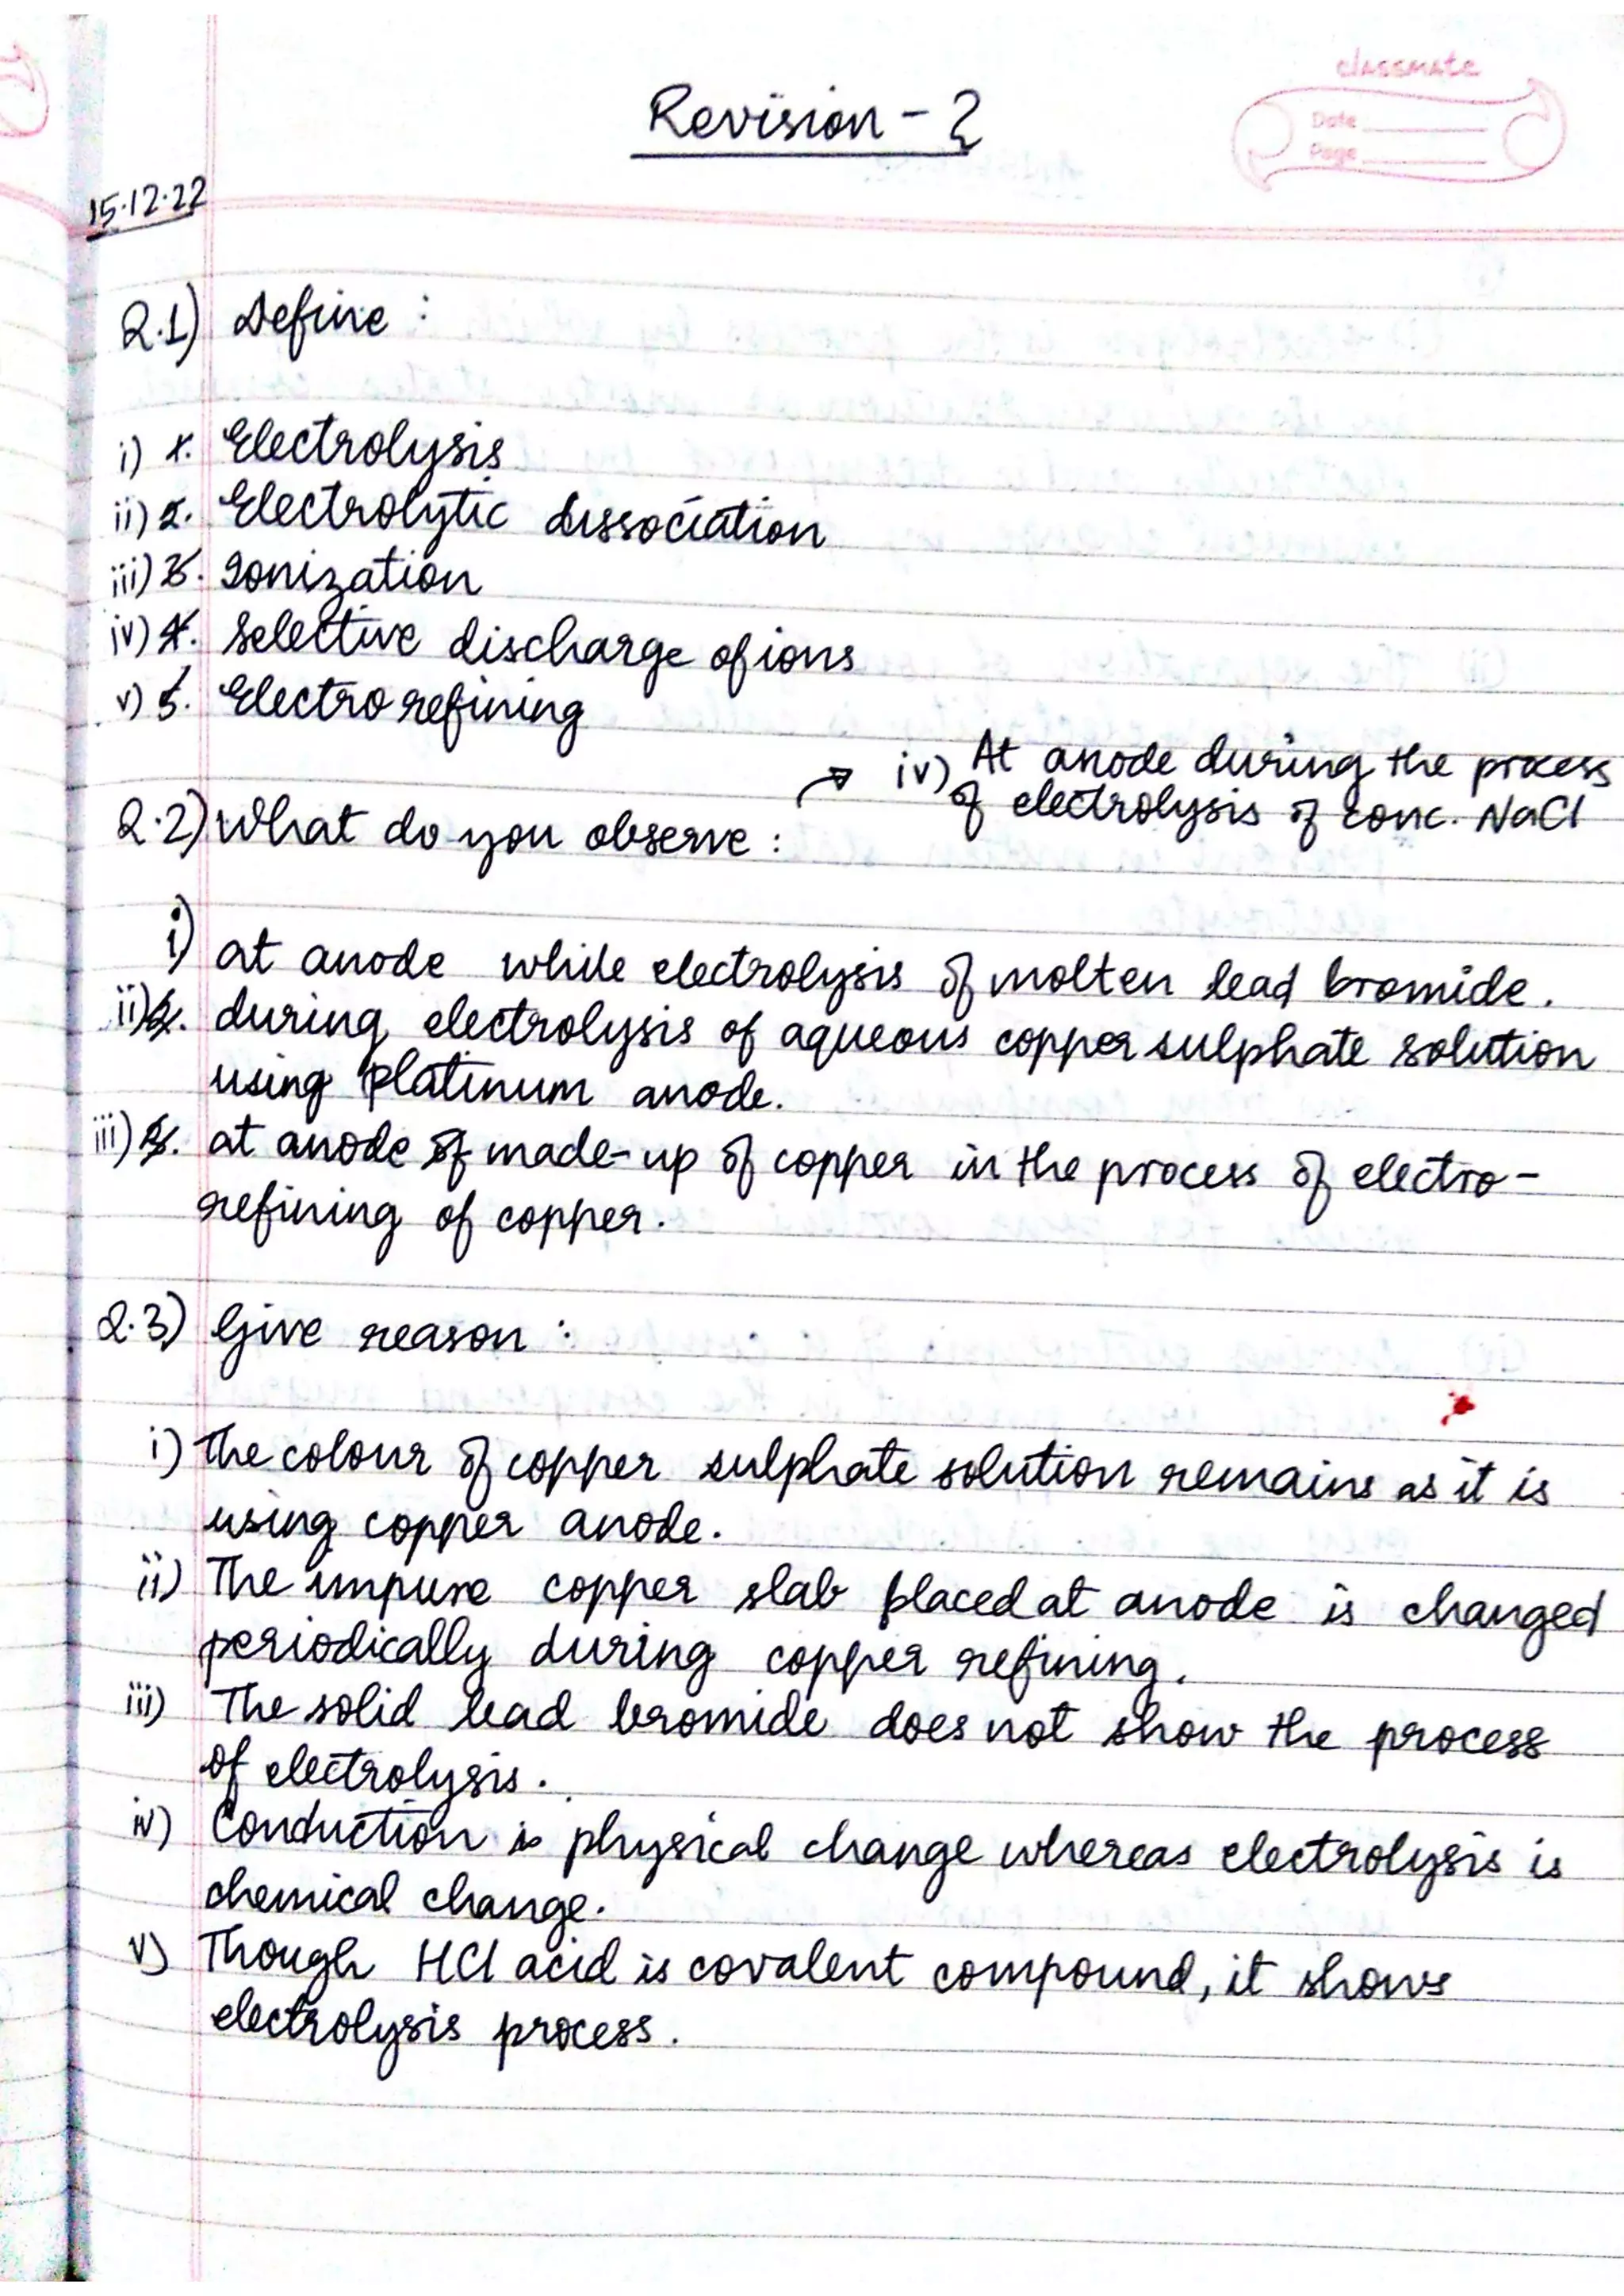 classmate
Date
Page
Revision - 2
15.12.22
Q.1) Define :
i) Electrolysis
ii) Electrolytic dissociation
iii) Ionization
iv) Selective discharge of ions
v) Electro refining
→ iv) At anode during the process
of electrolysis of conc. NaCl
Q.2) What do you observe :
i) at anode while electrolysis of molten lead bromide.
ii) during electrolysis of aqueous copper sulphate solution
using platinum anode.
iii) at anode made-up of copper in the process of electro-
refining of copper.
Q.3) Give reason :
i) The colour of copper sulphate solution remains as it is
using copper anode.
ii) The impure copper slab placed at anode is changed
periodically during copper refining.
iii) The solid lead bromide does not show the process
of electrolysis.
iv) Conduction is physical change whereas electrolysis is
chemical change.
v) Though HCl acid is covalent compound, it shows
electrolysis process.